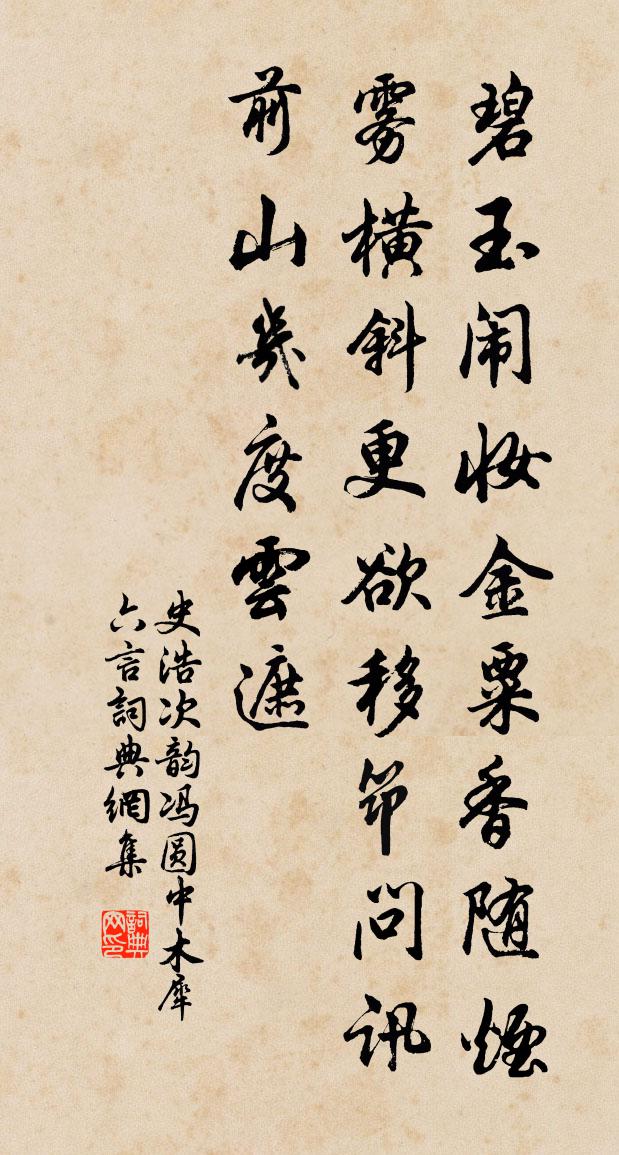 碧玉闹妆金粟香随烟
雾横斜更欲移筇问讯
前山几度云遮
史浩次韵冯圆中木犀
六言詞典網集
詞典网印